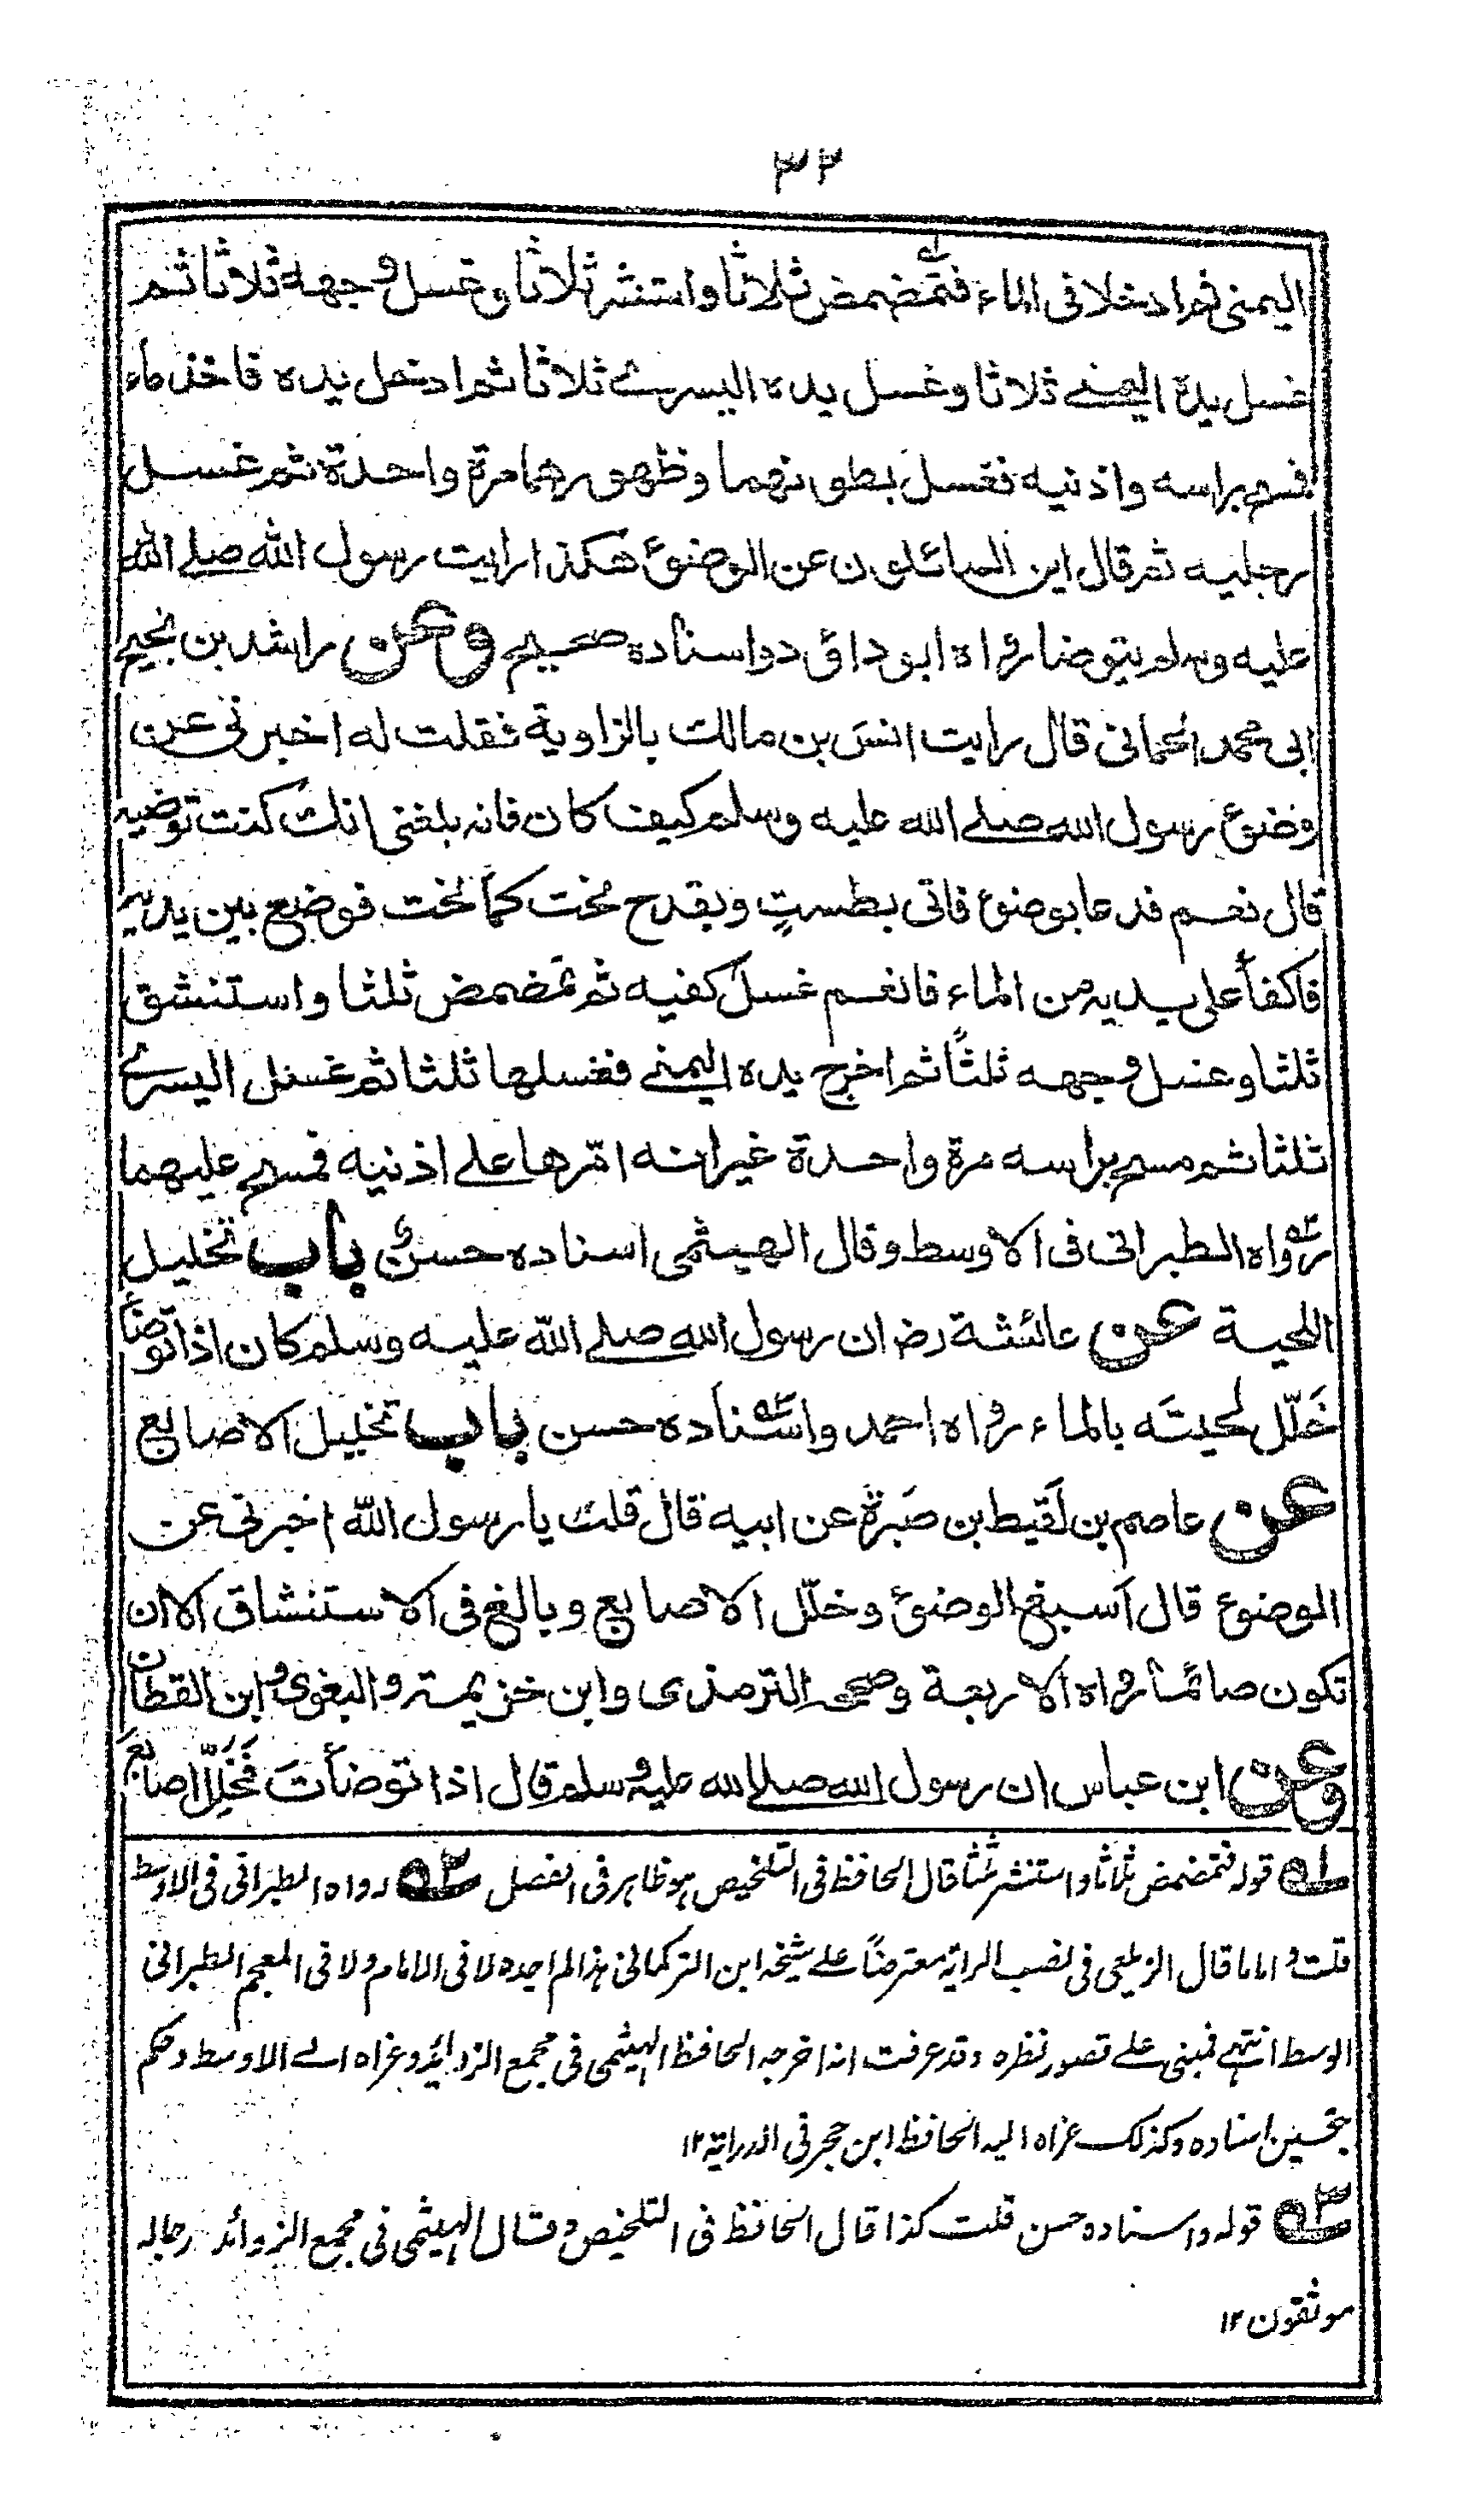 ٣٢
اليمنى ثم ادخلا فى الماء فتمضمض ثلاثا واستنشر ثلاثا وغسل وجهه ثلاثا ثم
غسل يده اليمنے ثلاثا وغسل يده اليسرے ثلاثا ثم ادخل يده فاخذ ماء
فمسح براسه واذنيه فغسل بطونهما وظهورهما مرة واحدة ثم غسل
رجليه ثم قال اين السائلون عن الوضوء هكذا رايت رسول الله صلے الله
عليه وسلم يتوضا رواه ابو داؤد واسناده صحيح وعن راشد بن نجيح
ابى محمد الحمانى قال رايت انس بن مالك بالزاوية فقلت له اخبرنى عن
وضوء رسول الله صلے الله عليه وسلم كيف كان فانه بلغنى انك كنت توضيه
قال نعم فدعا بوضوء فاتى بطستٍ وبقدح نحت كما نحت فوضع بين يديه
فاكفأ على يديه من الماء فانعم غسل كفيه ثم تمضمض ثلثا واستنشق
ثلثا وغسل وجهه ثلثاً ثم اخرج يده اليمنے فغسلها ثلثا ثم غسل اليسرے
ثلثا ثم مسح براسه مرة واحدة غير انه امّرها علے اذنيه فمسح عليهما
رواه الطبرانى فى الاوسط وقال الهيثمى اسناده حسن باب تخليل
اللحية عن عائشة رض ان رسول الله صلے الله عليه وسلم كان اذا توضأ
خَلّل لحيتَه بالماء رواه احمد واسناده حسن باب تخليل الاصابع
عن عاصم بن لَقيط بن صَبرة عن ابيه قال قلت يا رسول الله اخبرنى عن
الوضوء قال اَسبغ الوضوء وخلّل الاصابع وبالغ فى الاستنشاق الا ان
تكون صائما رواه الاربعة وصححه الترمذى وابن خزيمة والبغوى وابن القطان
وعن ابن عباس ان رسول الله صلے الله عليه وسلم قال اذا توضأتَ فخَلِّل اصابعَ
١ـه قوله فتمضمض ثلاثا واستنشر ثلثا قال الحافظ فى التلخيص ہو ظاہر فى الفصل ٢ـه رواه الطبرانى فى الاوسط
قلت واما ما قال الزيلعى فى نصب الراية معترضاً علے شيخہ ابن التركمانى ہذا لم اجده لا فى الامام ولا فى المعجم الطبرانى
الوسط انتہے فمبنى علے قصور نظره وقد عرفت انہ اخرجہ الحافظ الہيثمى فى مجمع الزوائد وعزاه الے الاوسط وحكم
بتحسين اسناده وكذلك عزاه اليہ الحافظ ابن حجر فى الدراية ١٢
٣ـه قوله واسناده حسن قلت كذا قال الحافظ فى التلخيص وقال الہيثمى فى مجمع الزوائد رجاله
موثقون ١٢